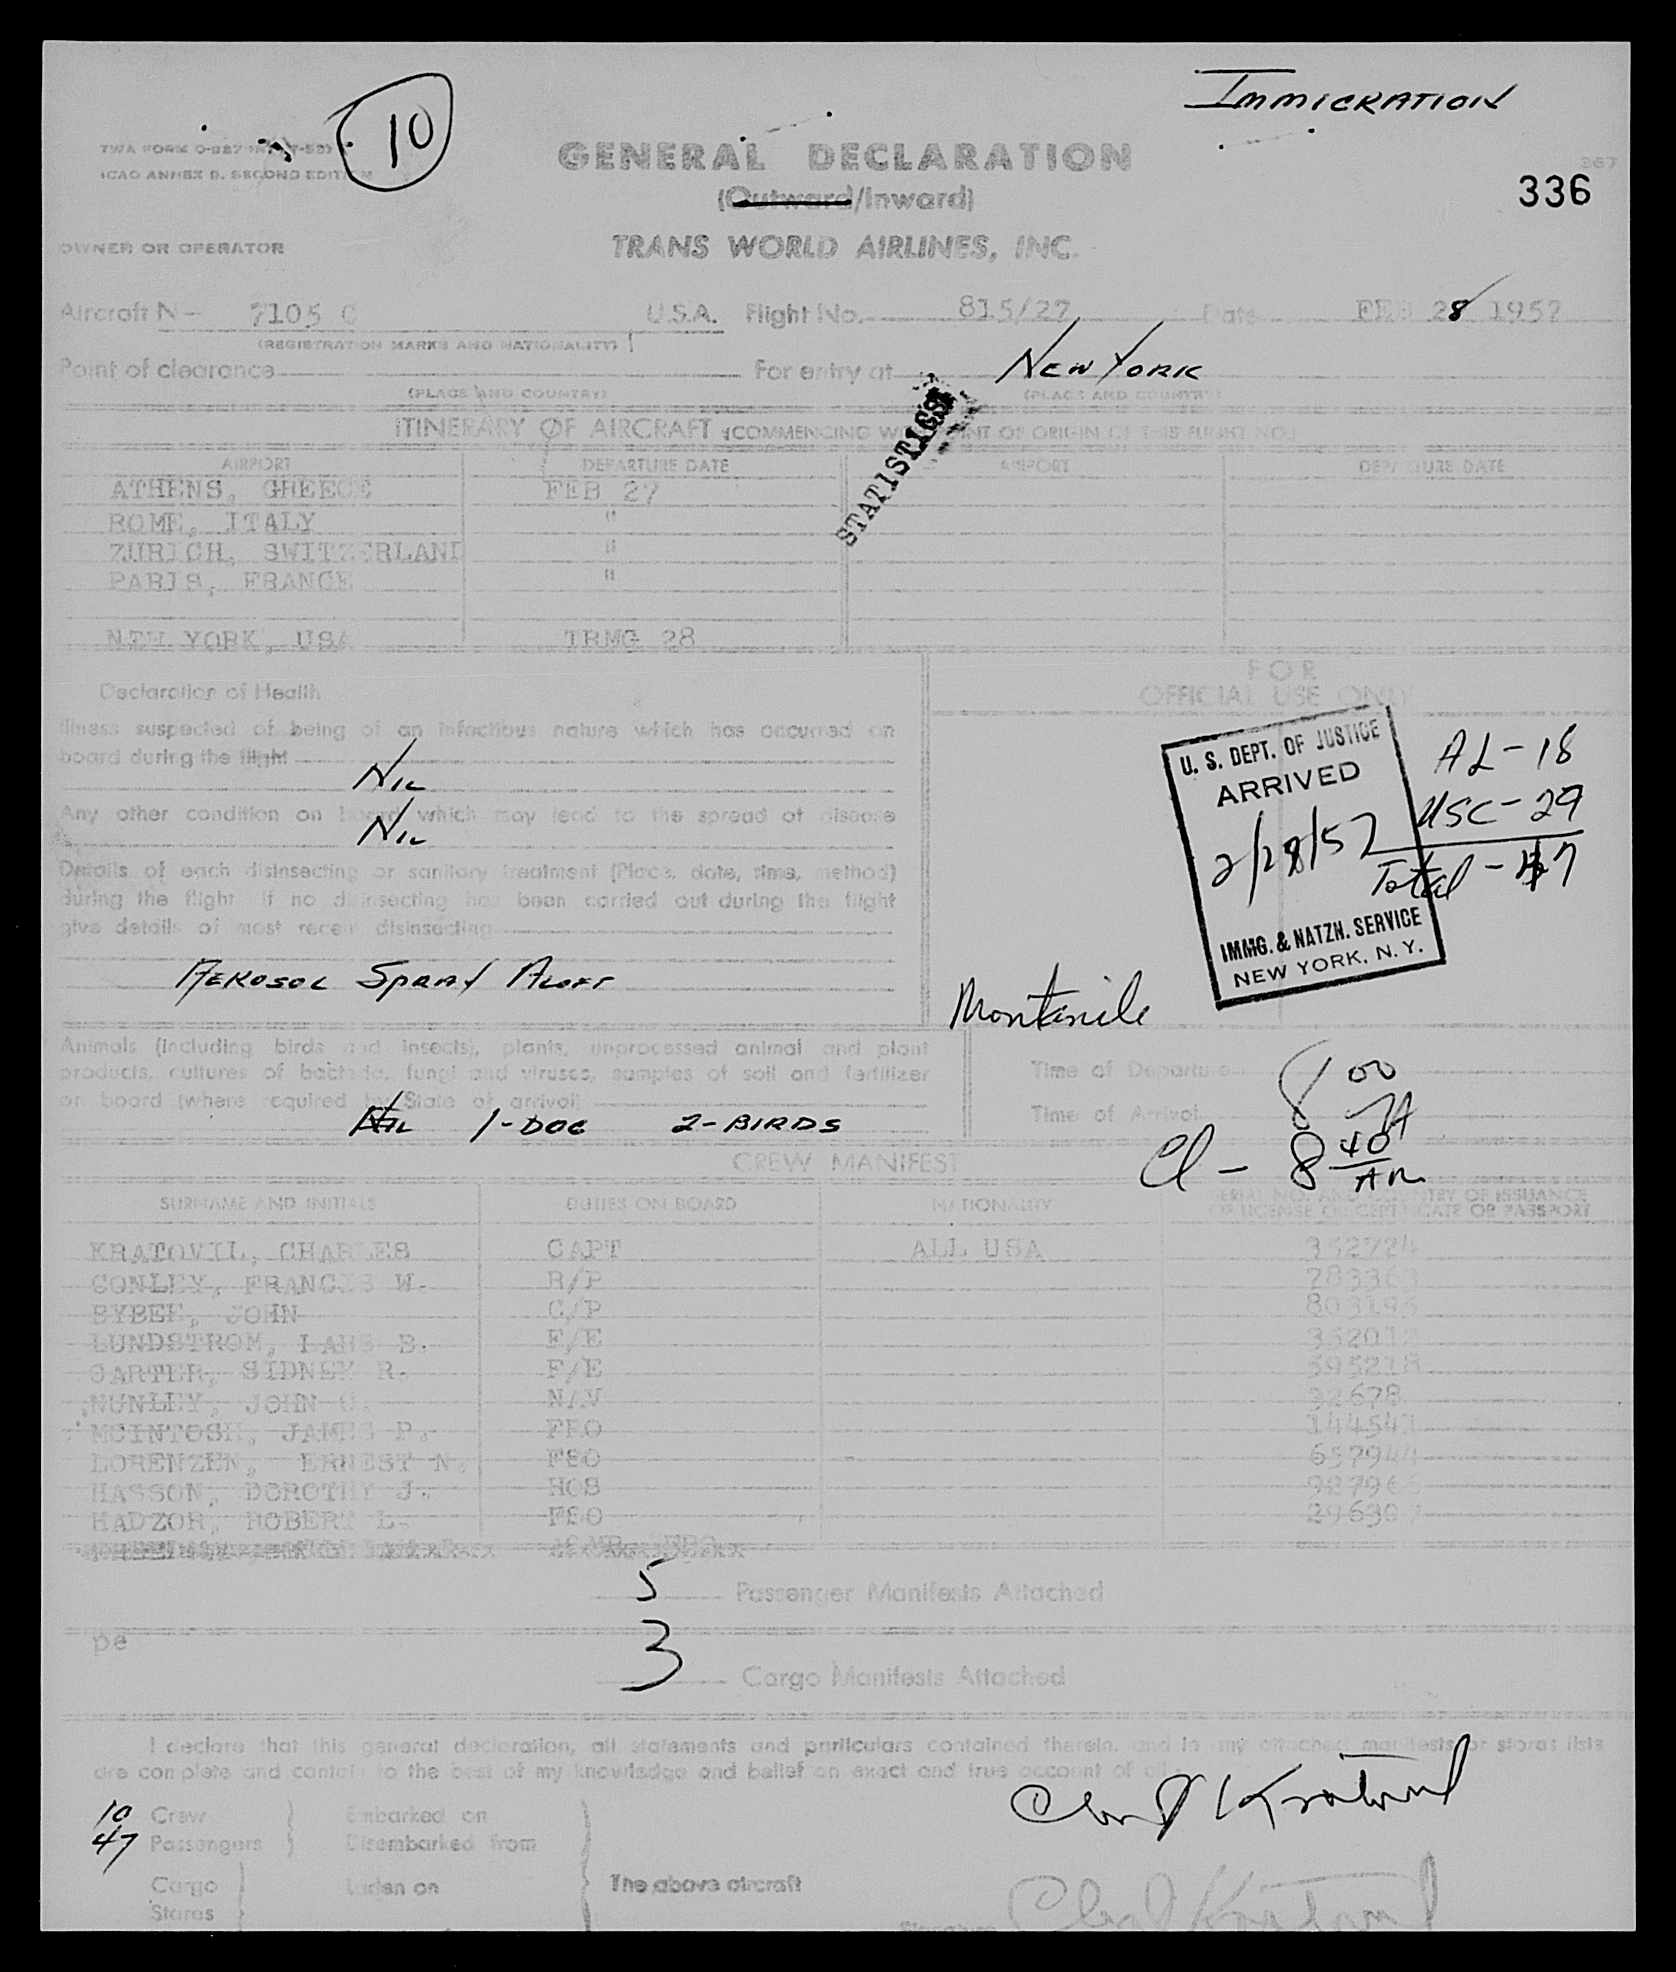 IMMIGRATION
10
TWA FORM O-
ICAO ANNEX 9, SECOND EDITION
GENERAL DECLARATION
367
(Outward/Inward)
336
OWNER OR OPERATOR
TRANS WORLD AIRLINES, INC.
Aircraft N- 7105 C U.S.A. Flight No. 815/27 Date FEB 28 1957
(REGISTRATION MARKS AND NATIONALITY)
Point of clearance For entry at NEW YORK
(PLACE AND COUNTRY) (PLACE AND COUNTRY)
STATISTICS
ITINERARY OF AIRCRAFT (COMMENCING WITH POINT OF ORIGIN OF THIS FLIGHT NO.)
AIRPORT DEPARTURE DATE AIRPORT DEPARTURE DATE
ATHENS, GREECE FEB 27
ROME, ITALY "
ZURICH, SWITZERLAND "
PARIS, FRANCE "
YORK, USA TRMG 28
FOR
OFFICIAL USE ONLY
Declaration of Health
Illness suspected of being of an infectious nature which has occurred on
board during the flight
NIL
Any other condition on board which may lead to the spread of disease
NIL
Details of each disinsecting or sanitary treatment (Place, date, time, method)
during the flight. If no disinsecting has been carried out during the flight
give details of most recent disinsecting
AEROSOL SPRAY ALOFT
U. S. DEPT. OF JUSTICE
ARRIVED
2/28/57
IMMG. & NATZN. SERVICE
NEW YORK, N. Y.
AL-18
USC-29
Total-47
Animals (including birds and insects), plants, unprocessed animal and plant
products, cultures of bacteria, fungi and viruses, samples of soil and fertilizer
on board (where required by State of arrival)
NIL 1-DOG 2-BIRDS
Time of Departure
Time of Arrival
8 00 A
Cl - 8 40 AM
CREW MANIFEST
SURNAME AND INITIALS DUTIES ON BOARD NATIONALITY SERIAL NO. AND COUNTRY OF ISSUANCE
OF LICENSE OR CERTIFICATE OR PASSPORT
KRATOVIL, CHARLES CAPT ALL USA
CONLEY, FRANCIS W.
JOHN C/P
LUNDSTROM, LARS B. F/E
CARTER, SIDNEY R. F/E 595218
NUNLEY, JOHN N/V 32678
MCINTOSH, JAMES P.
LORENZEN, ERNEST N.
HASSON, DOROTHY J. HOS
HADZOR, ROBERT L.
5 Passenger Manifests Attached
pe
3 Cargo Manifests Attached
I declare that this general declaration, all statements and particulars contained therein, and in any attached manifests or stores lists
are complete and contain to the best of my knowledge and belief an exact and true account of all
10 Crew Embarked on
47 Passengers Disembarked from
The above aircraft
Cargo Laden on
Stores
Signature